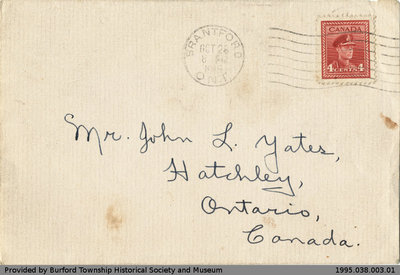 BRANTFORD
OCT 28
ONT.
CANADA
4 CENTS 4
Mr. John L. Yates,
Hatchley,
Ontario,
Canada.
Provided by Burford Township Historical Society and Museum
1995.038.003.01